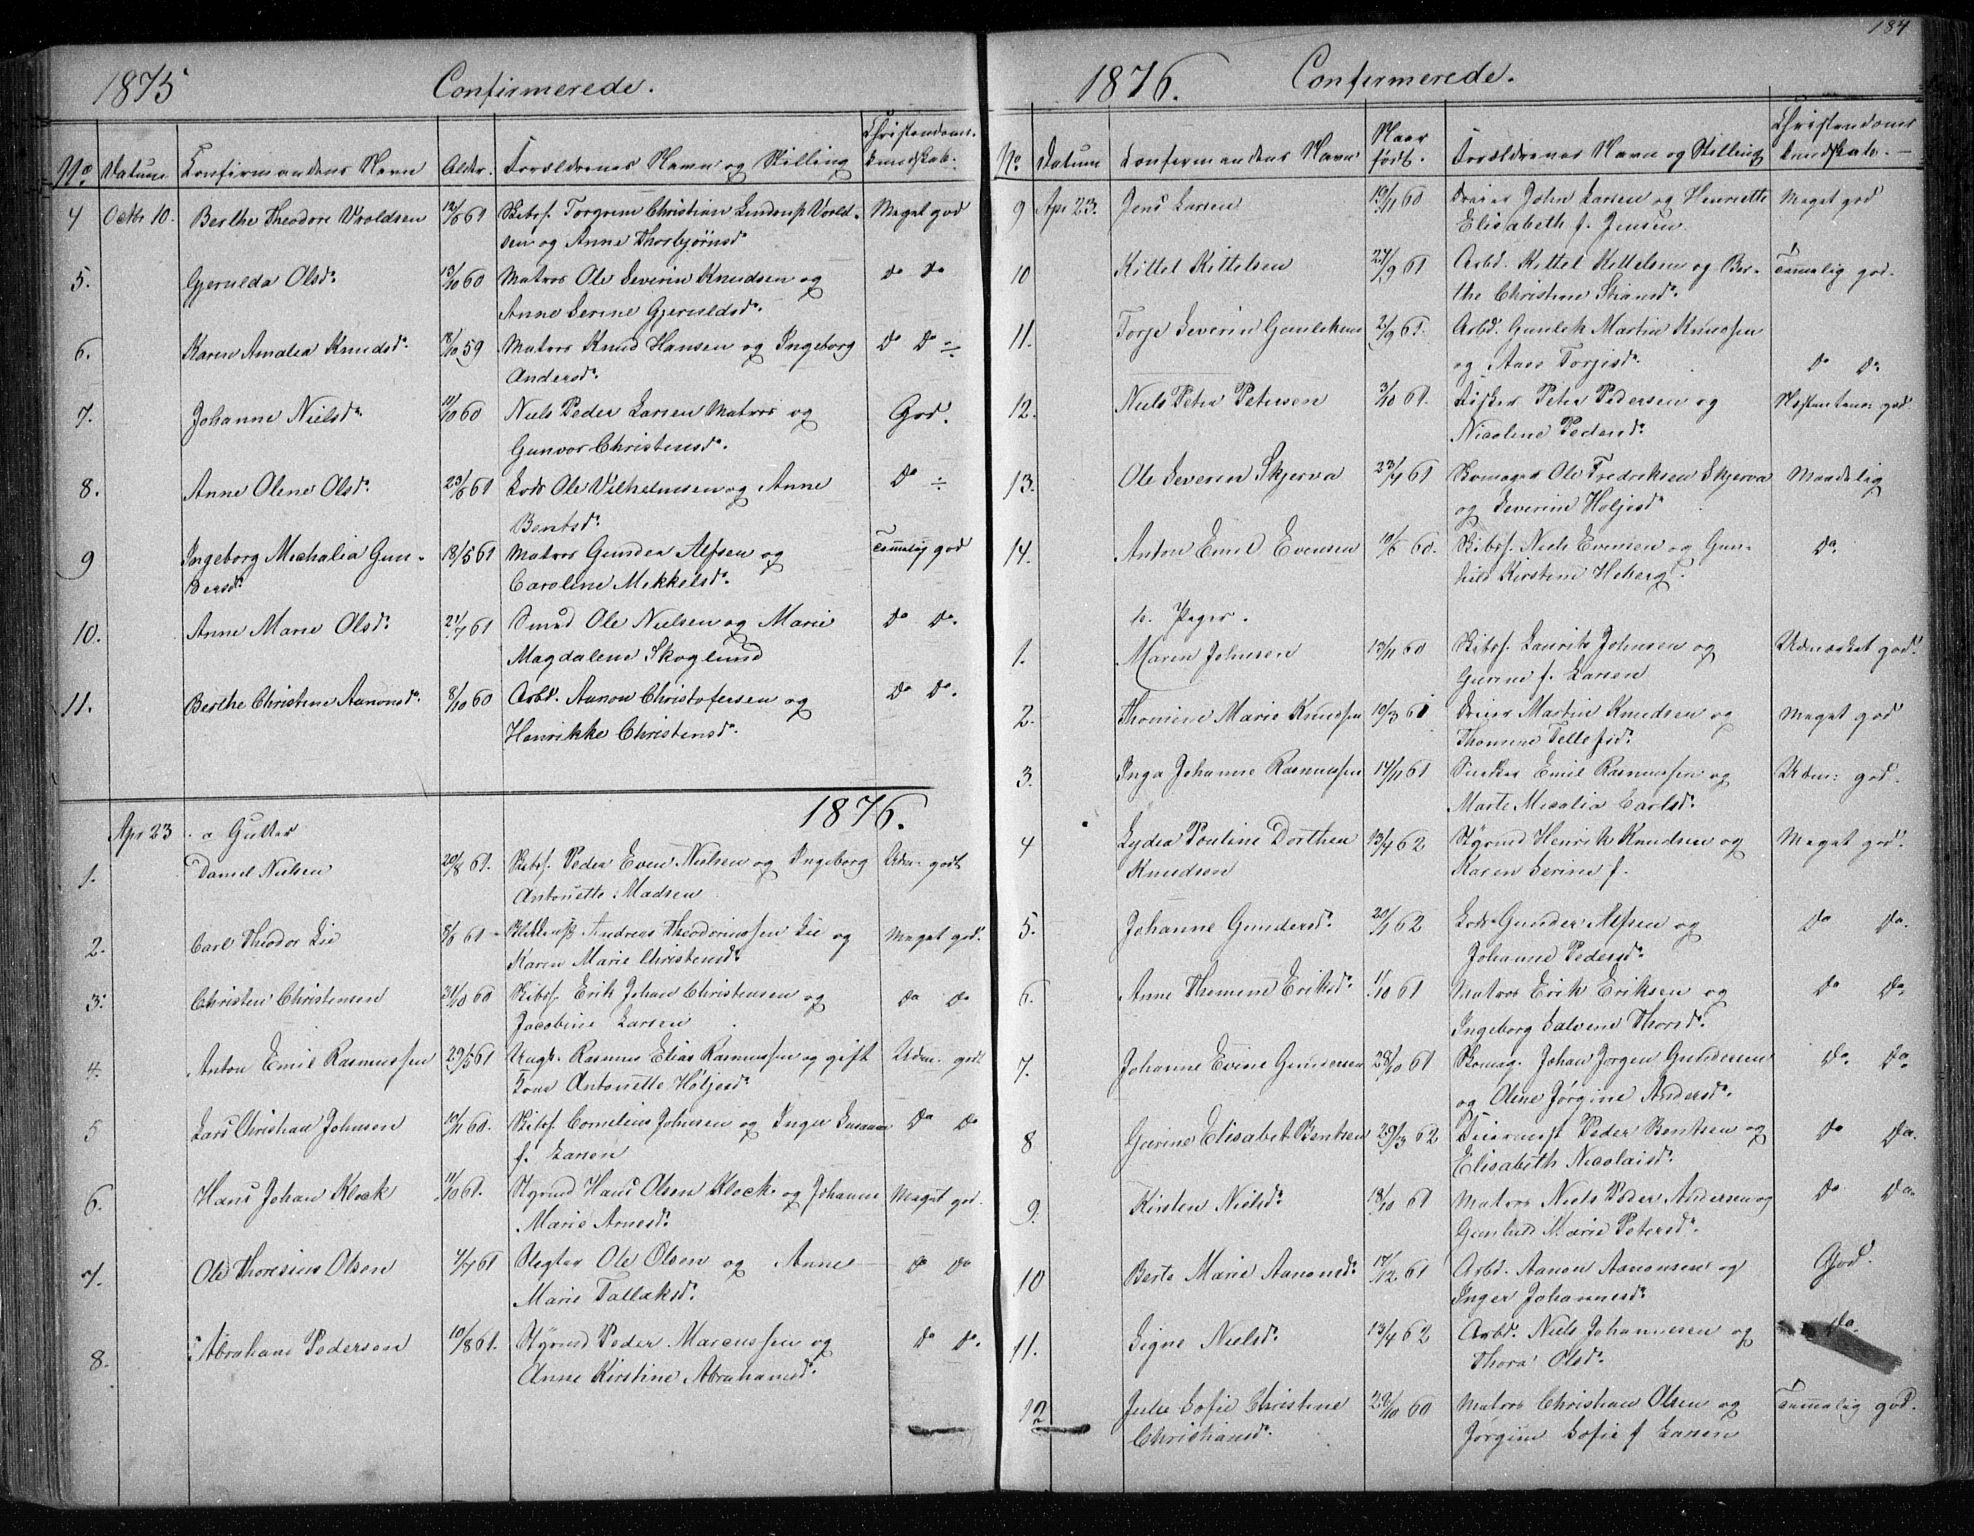 184
1875 Confirmerede.
No Datum Confirmandens Navn Alder. Forældrenes Navn og Stilling Christendoms-
kundskab.
4 Octbr 10. Berthe Theodore Vroldsen 12/6 61 Skibsf. Torgrim Christian Lindrup Vrold-
sen og Anne Thorbjørnsd. Meget god
5. Gjerulda Olsd. 13/10 60 Matros Ole Severin Knudsen og
Anne Serine Gjeruldsd. do do
6. Karen Amalia Knudsd. /10 59 Matros Knud Hansen og Ingeborg
Andersd. do do ÷
7. Johanne Nielsd. 11/10 60 Niels Peder Larsen Matros og
Gunvor Christensd. God.
8. Anne Olene Olsd. 23/6 61 Lods Ole Vilhelmsen og Anne
Bentsd. do ÷
9 Ingeborg Michalia Gun-
dersd. 18/5 61 Matros Gunder Alfsen og
Caroline Mikkelsd. Temmelig god
10. Anne Marie Olsd. 21/7 61 Smed Ole Nielsen og Marie
Magdalene Skoglund do do.
11. Berthe Christine Aanonsd. 8/10 60 Arbd. Aanon Christofersen og
Henrikke Christensd. do do.
1876.
Apr 23 a Gutter
1. Daniel Nielsen 20/8 61. Skibsf. Peder Even Nielsen og Ingeborg
Antonette Madsen Udm. godt
2. Carl Theodor Lie 8/6 61 Andreas Theodorussen Lie og
Karen Marie Christensd. Meget god.
3. Christen Christensen 31/10 60 Skibsf. Erik Johan Christensen og
Jacobine Larsen do do
4. Anton Emil Rasmussen 29/5 61 Ungk. Rasmus Elias Rasmussen og gift
Kone Antonette Høljesd. Udm. god.
5 Lars Christian Johnsen 10/11 60. Skibsf. Cornelius Johnsen og Inger Susanne
f. Larsen do do
6. Hans Johan Klock 11/10 61. Styrmd Hans Olsen Klock og Johanne
Marie Arnesd. Meget god.
7. Ole Thoresius Olsen 4/7 61 Slegter Ole Olsen og Anne
Marie Tallaksd. do do
8. Abraham Pedersen 10/8 61. Styrmd Peder Marcussen og
Anne Kirstine Abrahamsd. do do.
1876. Confirmerede.
No. Datum Confirmandens Navn Naar
født. Forældrenes Navn og Stilling Christendoms
kundskab.
9 Apr 23. Jens Larsen 19/11 60 Dreier John Larsen og Henriette
Elisabeth f. Jensen. Meget god
10 Kittel Kittelsen 27/9 61 Arbd. Kittel Kittelsen og Ber-
the Christine Stiansd. Temmelig god.
11. Torje Severin Gunleksen 2/9 61. Arbd. Gunlek Martin Knudsen
og Aase Torjisd. do do.
12. Niels Peter Petersen 3/10 61. Fisker Peter Pedersen og
Nicoline Pedersd. Næstentem: god
13. Ole Severin Skjerva 23/4 61 Ole Fredriksen Skjerva
og Severine Holjesd. Maadelig
14. Anton Emil Evensen 10/6 60. Skibsf. Niels Evensen og Gun-
hild Kirstine Heberg. do.
b. Piger.
1. Maren Johnsen 13/11 60 Skibsf. Laurits Johnsen og
Gurine f. Larsen Udmærket god.
2. Thomine Marie Knudsen 10/3 61 Dreier Martin Knudsen og
Thomine Tellefsd. Meget god
3. Inga Johanne Rasmussen 14/11 61 Emil Rasmussen og
Marte Micalia Carlsd. Udm: god.
4 Lydia Pouline Dorthea
Knudsen 13/4 62 Styrmd Henrik Knudsen og
Karen Serine f. Meget god.
5. Johanne Gundersd. 20/1 62 Lods Gunder Alfsen og
Johanne Pedersd. do do.
6. Anne Thomine Eriksd. 1/10 61 Matros Erik Eriksen og
Ingeborg Salvene Thorsd. do do.
7. Johanne Evine Gundersen 28/10 61 Johan Jørgen Gundersen
og Oline Jørgine Andersd. do. do.
8 Gurine Elisabet Bentsen 29/3 62 Peder Bentsen og
Elisabeth Nicolaisd. do do.
9. Kirsten Nielsd. 18/10 61 Matros Niels Peder Andersen og
Gunhild Marie Petersd. do do.
10 Berte Marie Aanonsd. 17/12 61 Arbd. Aanon Aanonsen og
Inger Johannesd. God.
11. Signe Nielsd. 13/4 62 Arbd. Niels Johannesen og
Thora Olsd. do.
12 Julie Sofie Christine
Christiansd. 29/10 60 Matros Christian Olsen og
Jørgine Sofie f Larsen Temmelig god.